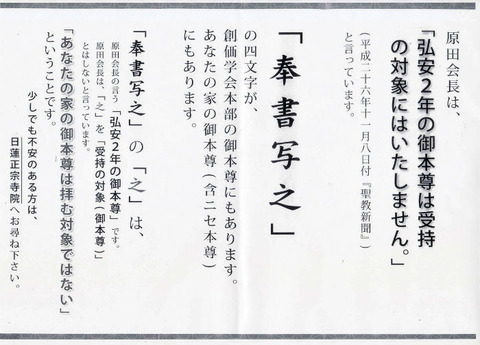 原田会長は、
「弘安２年の御本尊は受持
の対象にはいたしません。」
（平成二十六年十一月八日付『聖教新聞』）
と言っています。
「奉書写之」
の四文字が、
創価学会本部の御本尊にもあります。
あなたの家の御本尊（含ニセ本尊）
にもあります。
「奉書写之」の「之」は、
原田会長の言う「弘安２年の御本尊」です。
原田会長は、「之」を「受持の対象（御本尊）」
とはしないと言っています。
「あなたの家の御本尊は拝む対象ではない」
ということです。
少しでも不安のある方は、
日蓮正宗寺院へお尋ね下さい。